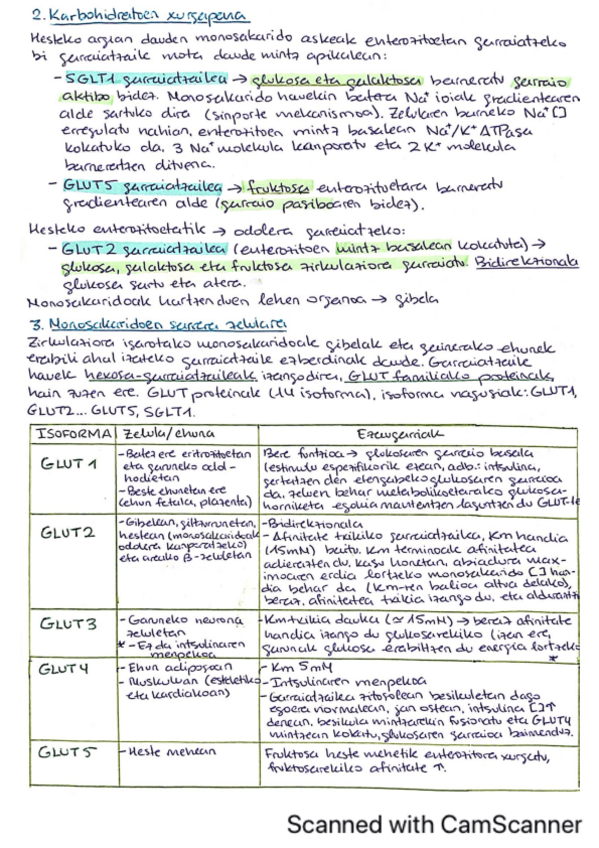 2. Karbohidratoen xurgapena
Hesteko argian dauden monosakarido askeak enterozitoetan garraiatzeko
bi garraiatzaile mota daude mintz apikalean:
- SGLT1 garraiatzailea → glukosa eta galaktosa barneratu garraio
aktibo bidez. Monosakarido havekin batera Na⁺ ioiak gradientearen
alde sartuko dira (sinporte mekanismoa). Zelularen barneko Na⁺ []
erregulatu nahian, enterozitoen mintz basalean Na⁺/K⁺ ATPasa
kokatuko da, 3 Na⁺ molekula kanporatu eta 2 K⁺ molekula
barneratzen dituena.
- GLUT5 garraiatzailea → fruktosa enterozitoetara barneratu
gradientearen alde (garraio pasiboaren bidez).
Hesteko enterozitoetatik → odolera garraiatzeko:
- GLUT2 garraiatzailea (enterozitoen mintz basalean kokatuta) →
glukosa, galaktosa eta fruktosa zirkulaziora garraiatu. Bidirekzionala
glukosa sartu eta atera.
Monosakaridoak hartzen duen lehen organoa → gibela
3. Monosakaridoen sarrera zelulara
Zirkulaziora igarotako monosakaridoak gibelak eta gainerako ehunek
erabili ahal izateko garraiatzaile ezberdinak daude. Garraiatzaile
hauek hexosa-garraiatzaileak izango dira, GLUT familiako proteinak,
hain zuzen ere. GLUT proteinak (14 isoforma), isoforma nagusiak: GLUT1,
GLUT2... GLUT5, SGLT1.
ISOFORMA Zelula/ehuna Ezaugarriak
GLUT 1
- Batez ere eritrozitoetan
eta garuneko odol-
hodietan
- Beste ehunetan ere
(ehun fetala, plazenta)
Bere funtzioa → glukosaren garraio basala
(estimulu espezifikorik ezean, adb.: intsulina,
gertatzen den etengabeko glukosaren garraioa
da, zelulen behar metabolikoetarako glukosa-
horniketa egokia mantentzen laguntzen du GLUT-1ek
GLUT2
- Gibelean, giltzurrunetan,
hestean (monosakaridoak
odolera kanporatzeko)
eta areako β-zeluletan
- Bidirekzionala
- Afinitate txikiko garraiatzailea, Km handia
(15mM) baitu. Km terminoak afinitatea
adierazten du, kasu honetan, abiadura max-
imoaren erdia lortzeko monosakarido [] han-
dia behar da (Km-ren balioa altua delako),
beraz, afinitatea txikia izango du, eta alderantziz
GLUT3
- Garuneko neurona
zeluletan
* - Ez da intsulinaren
menpekoa
- Km txikia dauka (≃ 15mM) → beraz afinitate
handia izango du glukosarekiko (izan ere,
garunak glukosa erabiltzen du energia lortzeko
*
GLUT 4
- Ehun adiposoan
- Muskuluan (eskeletiko
eta kardiakoan)
- Km 5mM
- Intsulinaren menpekoa
- Garraiatzailea zitosolean besikuletan dago
egoera normalean, jan ostean, intsulina []↑
denean, besikula mintzarekin fusionatu eta GLUT4
mintzean kokatu, glukosaren garraioa baimenduz.
GLUT 5
- Heste mehean
Fruktosa heste mehetik enterozitora xurgatu,
fruktosarekiko afinitate ↑.
Scanned with CamScanner